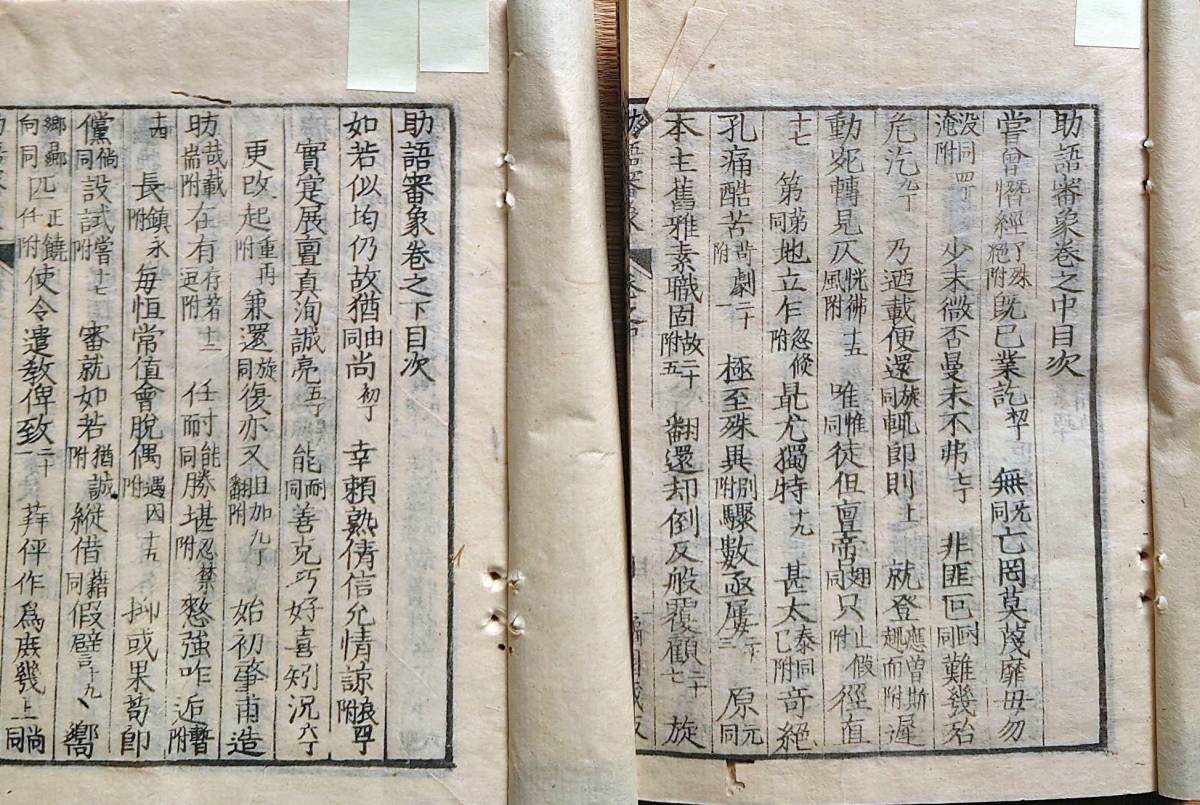 助語審象卷之中目次
嘗曾憯經了殊絕附既已業訖初丁 無无同亡罔莫蔑靡毋勿
没同淹附四丁 少末微否曼未不弗七丁 非匪叵同難幾殆
危汔九丁 乃迺載便還旋同輒即則上 就登應曾斯附遲
動宛轉見仄恍彿風附十五 唯惟同徒但亶啻翅同只止假附徑直
十七 第弟同地立乍忽倏附最尤獨特十九 甚太泰同已附奇絕
孔痛酷苦苛附劇二十一 極至殊具別附驟數亟屢二十三 原元同
本主舊雅素職固故附二十五 翻還却倒反般覆顧二十七 旋
助語審象卷之下目次
如若似均仍故猶由同尚初丁 幸賴熟倩信允情諒良附四丁
實寔展亶真洵誠亮五丁 能耐同善克巧好喜矧況六丁
更改起重再附 兼還旋同復亦又且加翻附九丁 始初肇甫造
哉載耑附在有存若附十二 任寸而能同勝堪忍禁附憗強咋 近暫附
十四 長鎮附永每恒常值會脫偶遇因附十五 抑或果苟即
儻倘同設試嘗附十七 審就如若猶誠附縱借藉同假譬十九 嚮
鄉曏向同匹正饒任附使令遣教俾致二十一 伻作爲庶幾上尚同